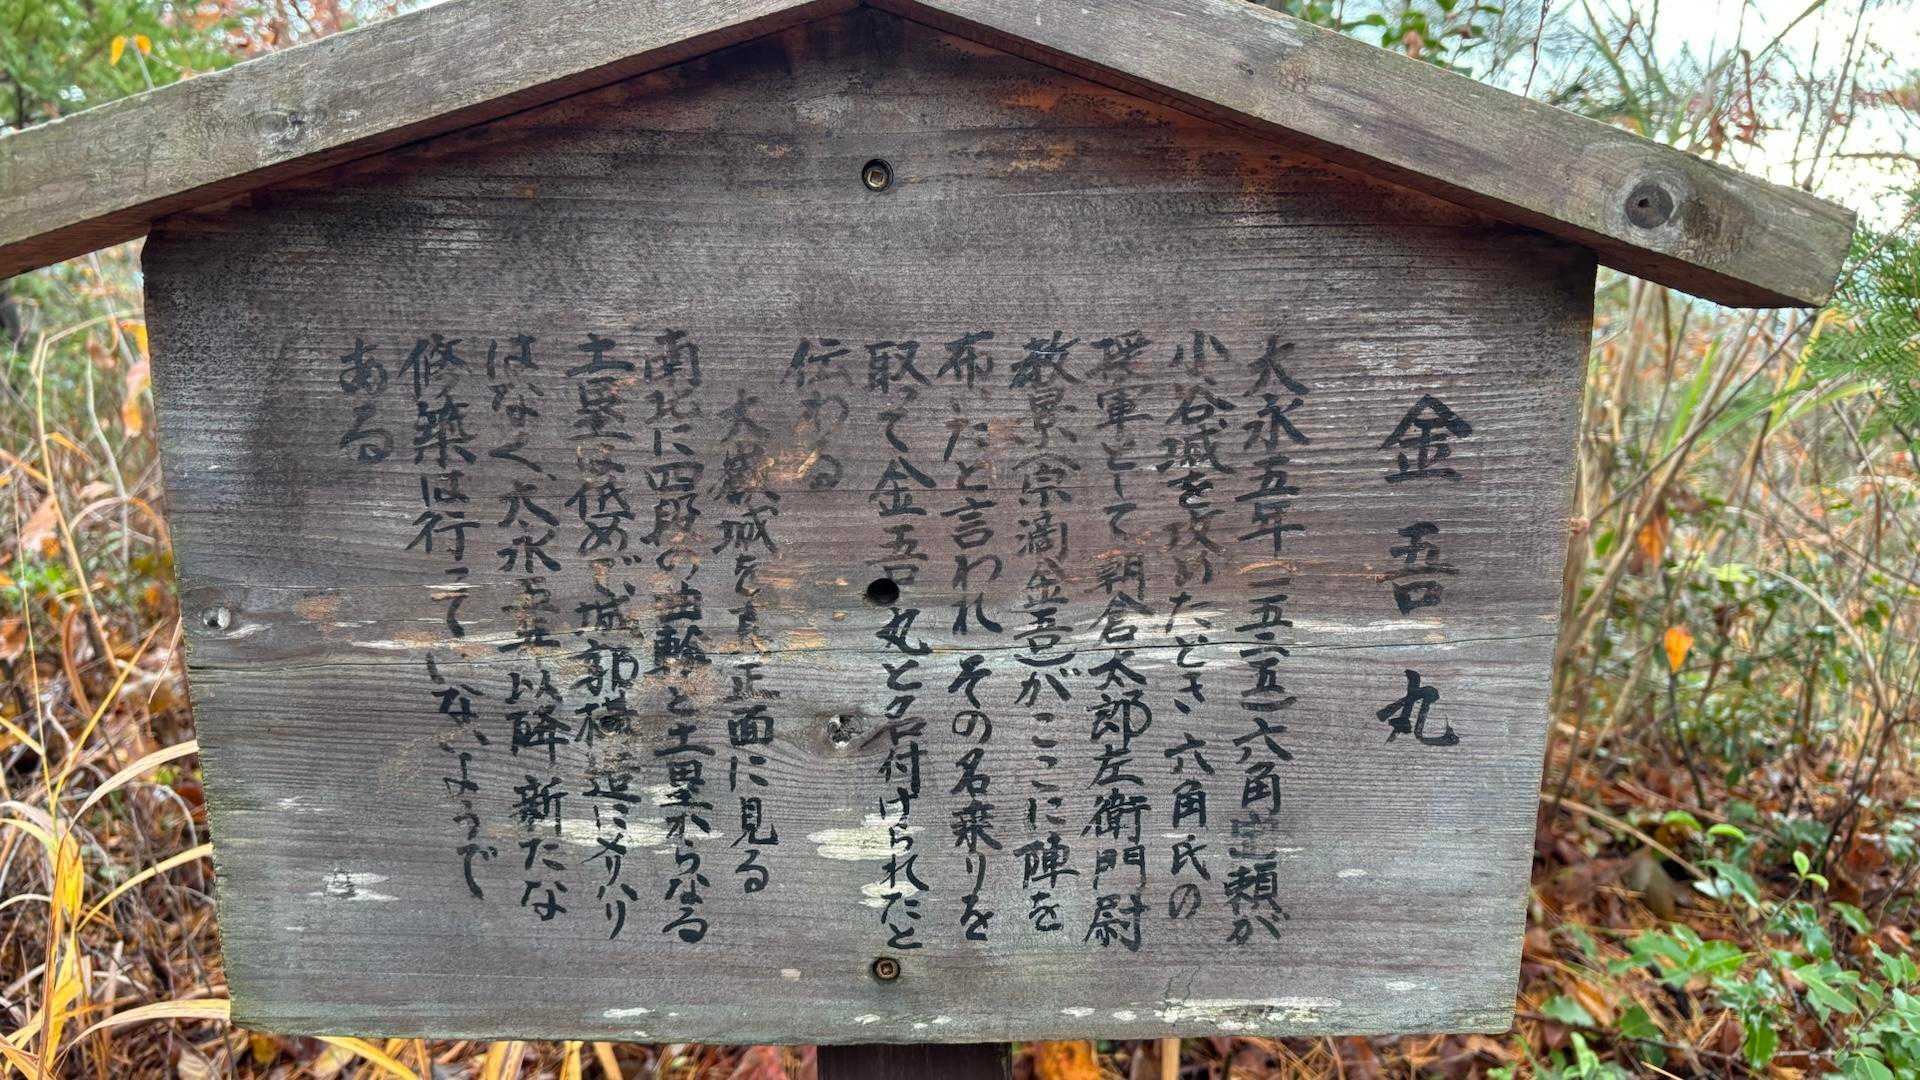 金吾丸
大永五年(一五二五)六角定頼が
小谷城を攻めたとき 六角氏の
援軍として朝倉太郎左衛門尉
教景(宗滴金吾)がここに陣を
布いたと言われ その名乗りを
取って金吾丸と名付けられたと
伝わる
大嶽城を真正面に見る
南北に四段の曲輪と土塁からなる
土塁は低めで、城郭構造にメリハリ
はなく、大永五年以降 新たな
修築は行っていないようで
ある